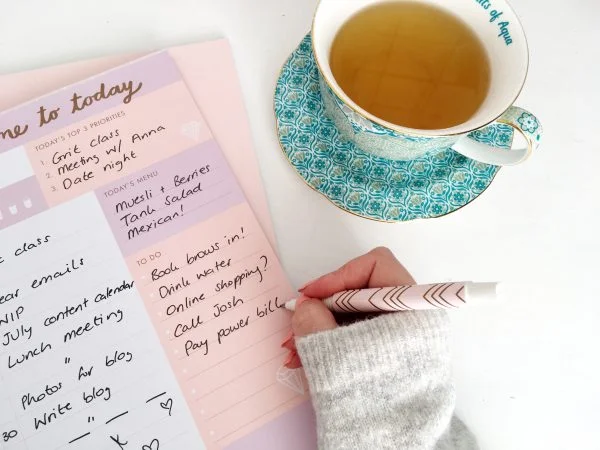 me to today
TODAY'S TOP 3 PRIORITIES
1. Grit class
2. Meeting w/ Anna
3. Date night
TODAY'S MENU
Muesli + Berries
Tank Salad
Mexican!
TO DO
Book brows in!
Drink water
Online shopping?
Call Josh
Pay power bill
class
emails
WIP
July content calendar
Lunch meeting
"
Photos for blog
30 Write blog
— " — —
x
ts of Aqua